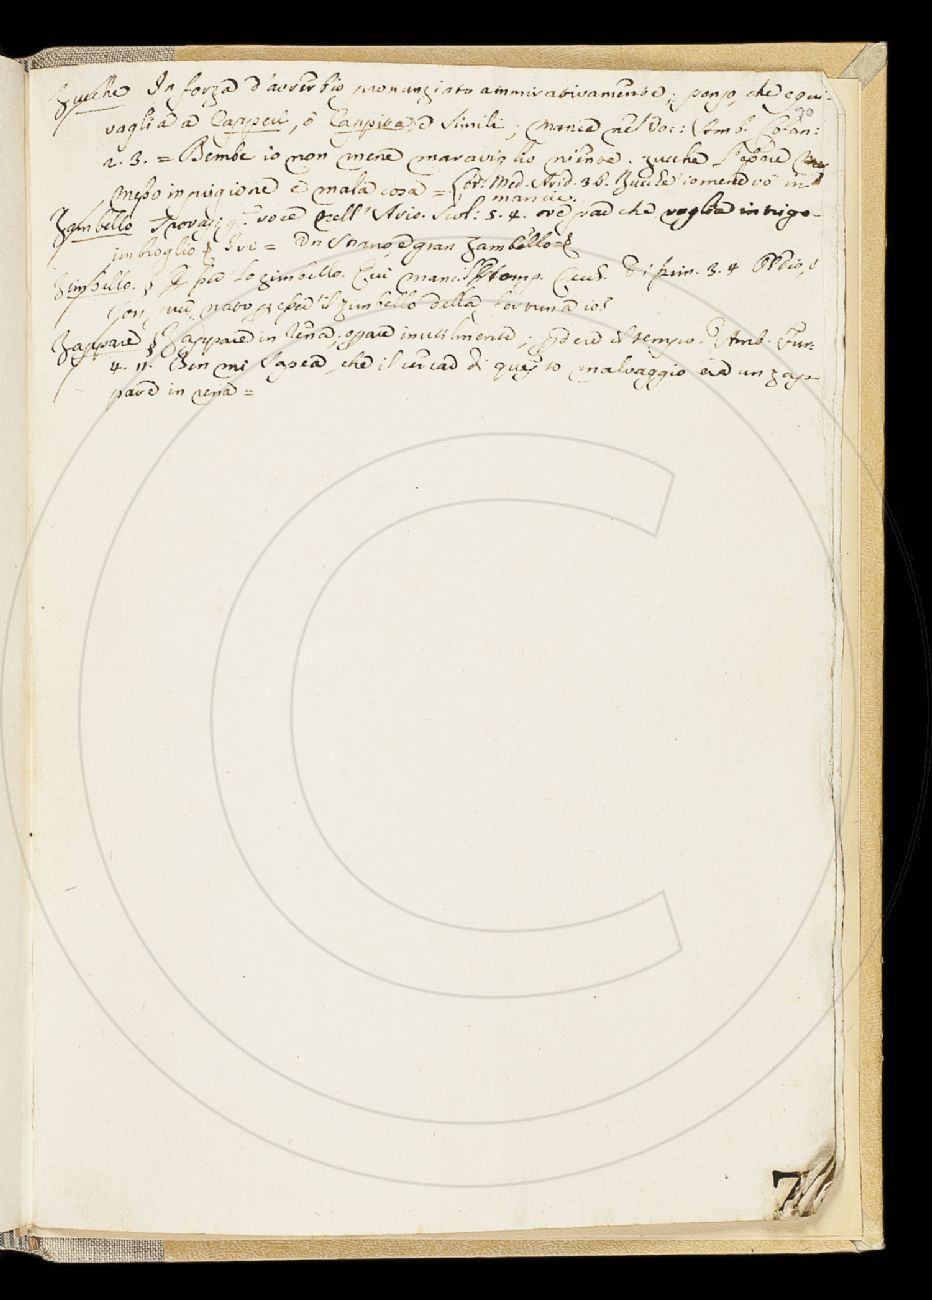 Zucche In forza d'avverbio pronunziato ammirativamente; penso, che equi-
vaglia a Capperi, ò Cappita, e simili; manca nel Voc: Amb. Cofan:
2. 3. = Bembe io non mene maraviglio niente. zucche l'essere
messo in prigione è mala cosa = Lor. Med. Arid. 3. 6. Zucche io me ne vò in
mancie.
Zambello Trovasi qta voce nell' Ario. Scol: 5. 4. ove par che voglia intrigo
imbroglio Ivi = Un strano, e gran Zambello =
Zimbello. § per lo zimbello. Qui manca Cecch. 3. 4
son, nato per esser il zimbello della fortuna io
Zappare § Zappare in rena, oprare inutilmente; perdere il tempo. Amb. Fur.
4. 11. Ben mi sapea, che il cercar di questo malvaggio era un zap-
pare in rena =
70
7